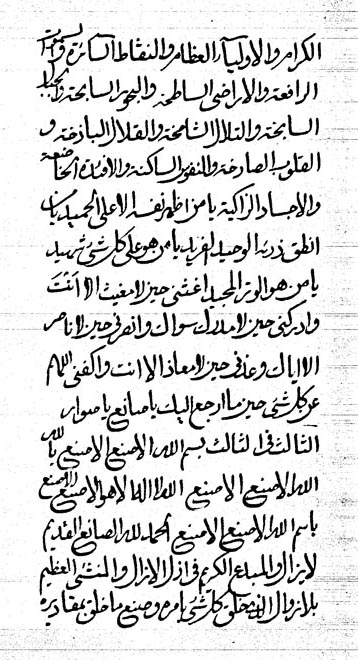 الكرام والاولياء العظام والنقاط السائرة والسموات
الرافعة والاراضى الساطحة والبحور السابحة والجبال
السابحة والتلال الشامخة والقلال الباذخة و
القلوب الصارخة والنفوس الساكنة والافئدة الخاضعة
والاجساد الزاكية يا من اظهر نفسه الاعلى الحميد يا من
انطق ذريه الوحيد الفريد يا من هو على كل شئ شهيد
يا من هو الوتر المجيد اغثنى حين لا مغيث الا انت
وادركنى حين لا مدرك سواك وانصرنى حين لا ناصر
الا اياك وعذنى حين لا معاذ الا انت واكفنى اللهم
عن كل شئ حين ما ارجع اليك يا صانع يا صوار
الثالث فى الثالث بسم الله الاصنع الاصنع بالله
الله الاصنع الاصنع الله لا اله الا هو الاصنع الاصنع
باسم الله الاصنع الاصنع الحمد لله الصانع القديم
لا يزال والمبدع الكريم فى ازل الازال والمنشئ العظيم
بلا زوال الذى خلق كل شئ بامره وصنع ما خلق بمقاديره